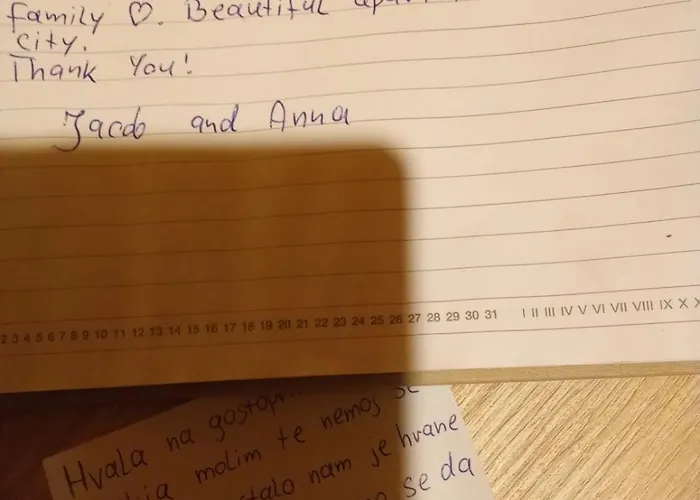 family ♡. Beautiful
city.
Thank You!
Jacob and Anna
2 3 4 5 6 7 8 9 10 11 12 13 14 15 16 17 18 19 20 21 22 23 24 25 26 27 28 29 30 31 I II III IV V VI VII VIII IX X
Hvala na
molim te nemoj se
nam je hrane
se da